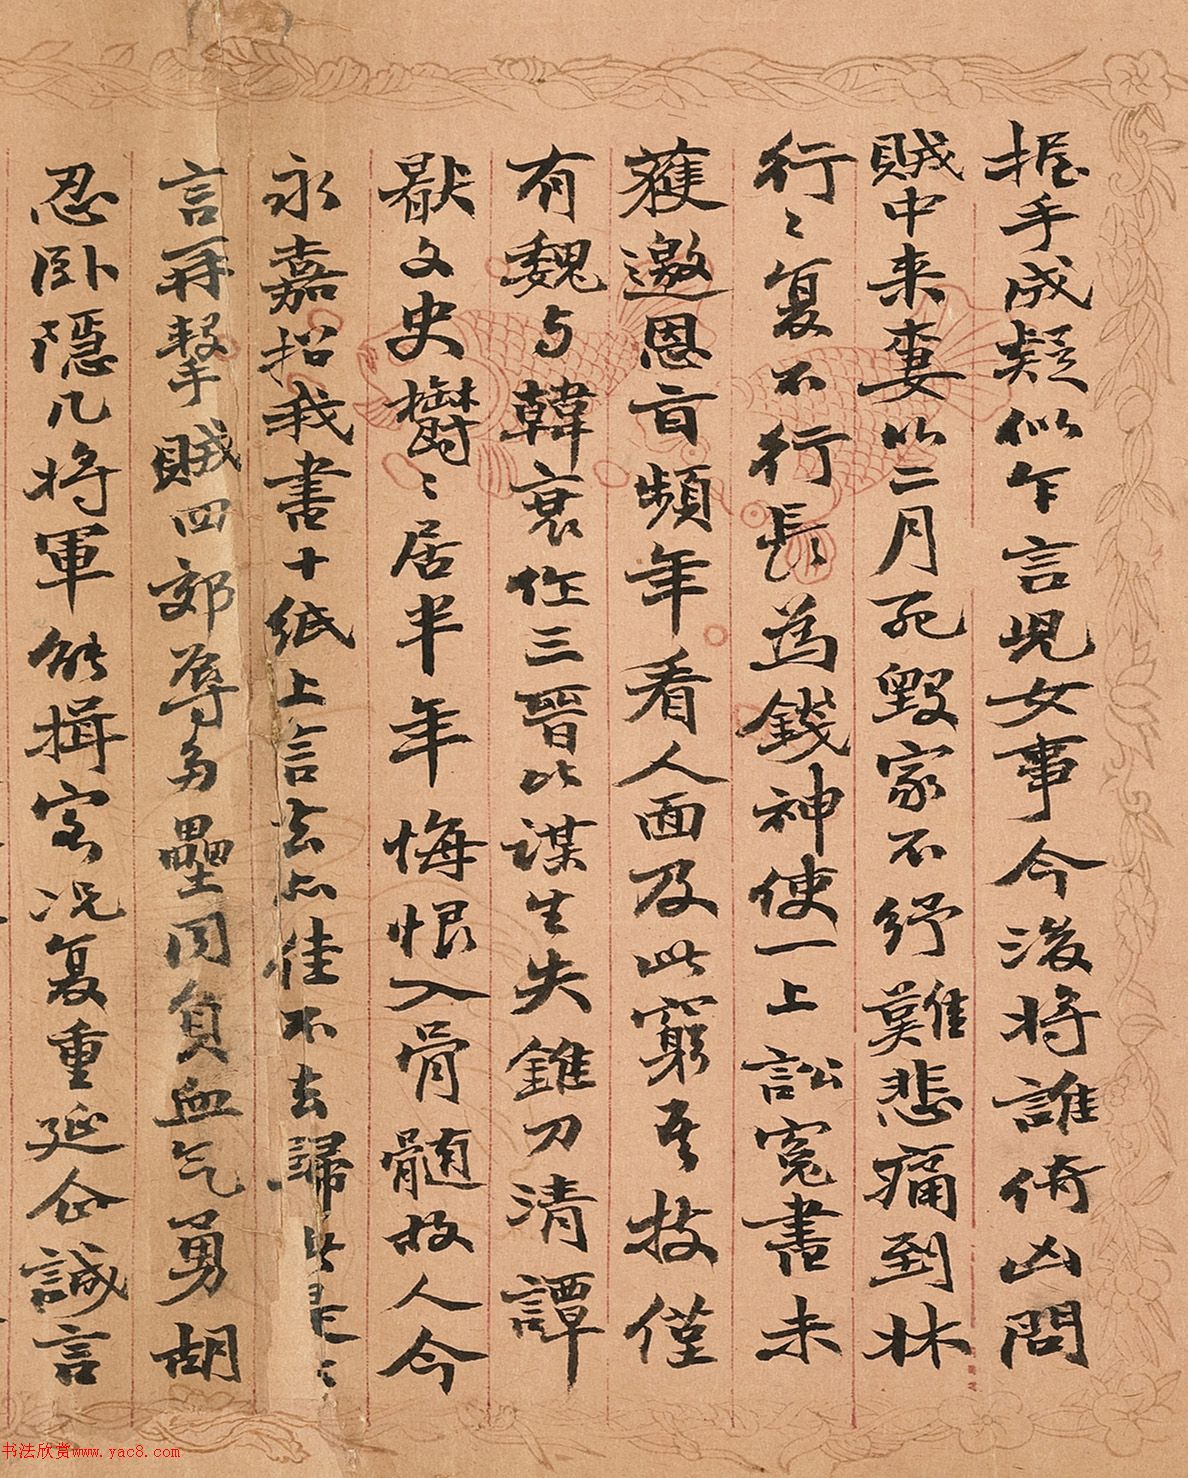 握手成疑似乍言児女事今後将誰倚凶問
賊中来妻以二月死毀家不紓難悲痛到牀
行〻复不行長為錢神使一上訟冤書未
蒦邀恩盲頻年看人面及此窮吾技僅
有魏与韓衰作三晉比謀生失錐刀清譚
猒文史欝〻居半年悔恨入骨髓故人今
永嘉招我書十紙上言去亦佳不去歸
言再擊賊四郊辱多壘同負血气勇胡
忍卧隱几将軍能揖客况复重延企誠言
书法欣赏www.yac8.com